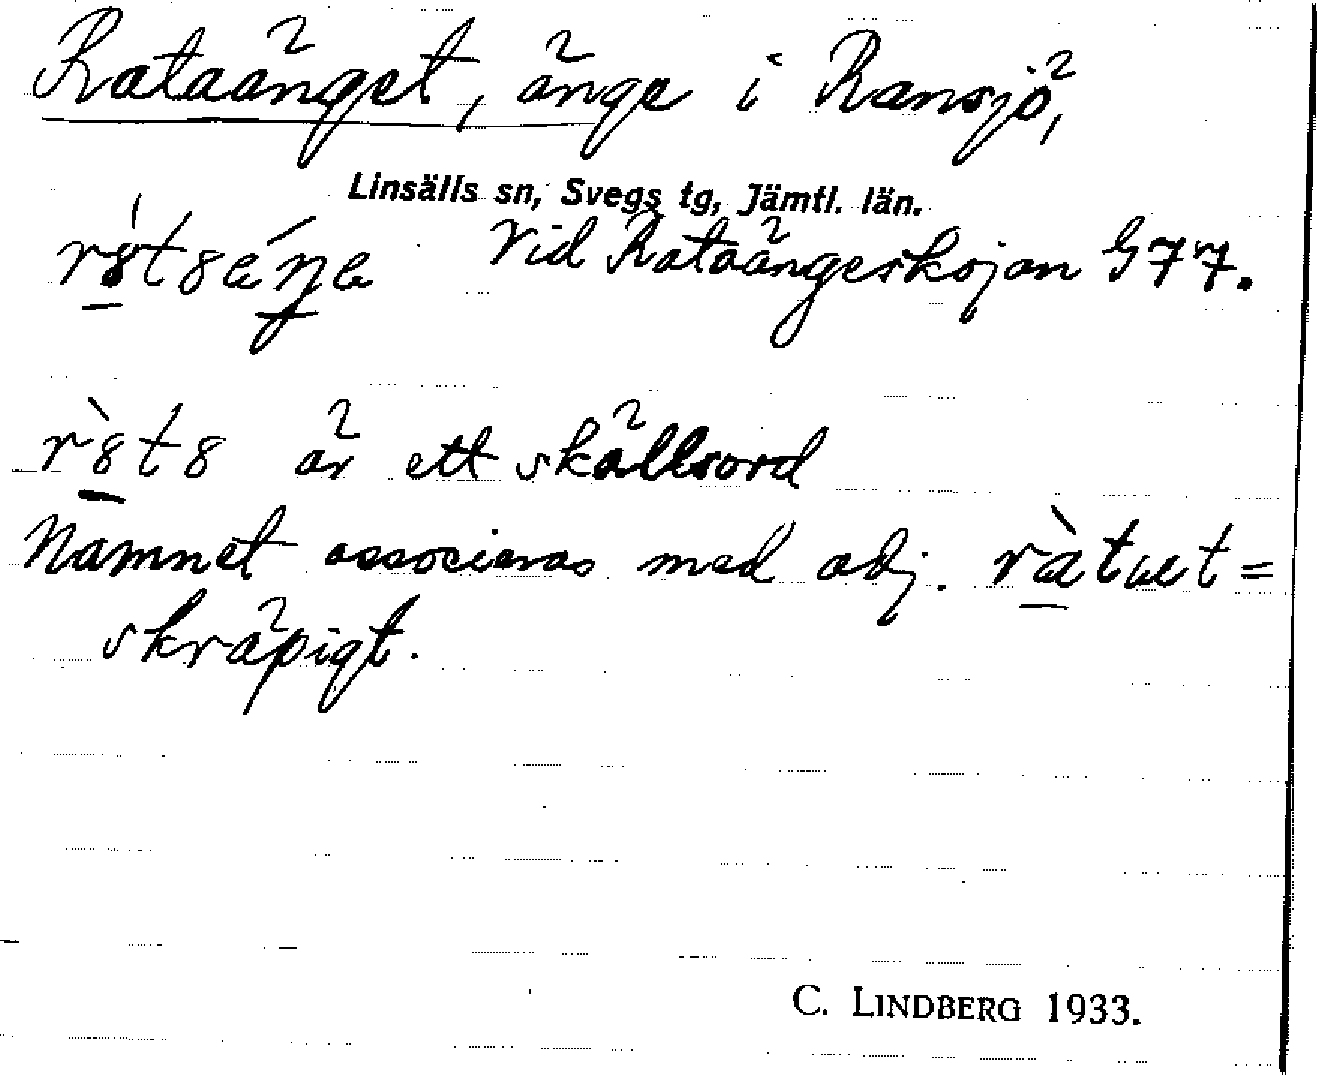 Rataänget, änge i Ransjö,
Linsälls sn, Svegs tg, Jämtl. län.
Vid Rataängeskojan G77.
är ett skällsord
Namnet associeras med adj. =
skräpigt.
C. LINDBERG 1933.